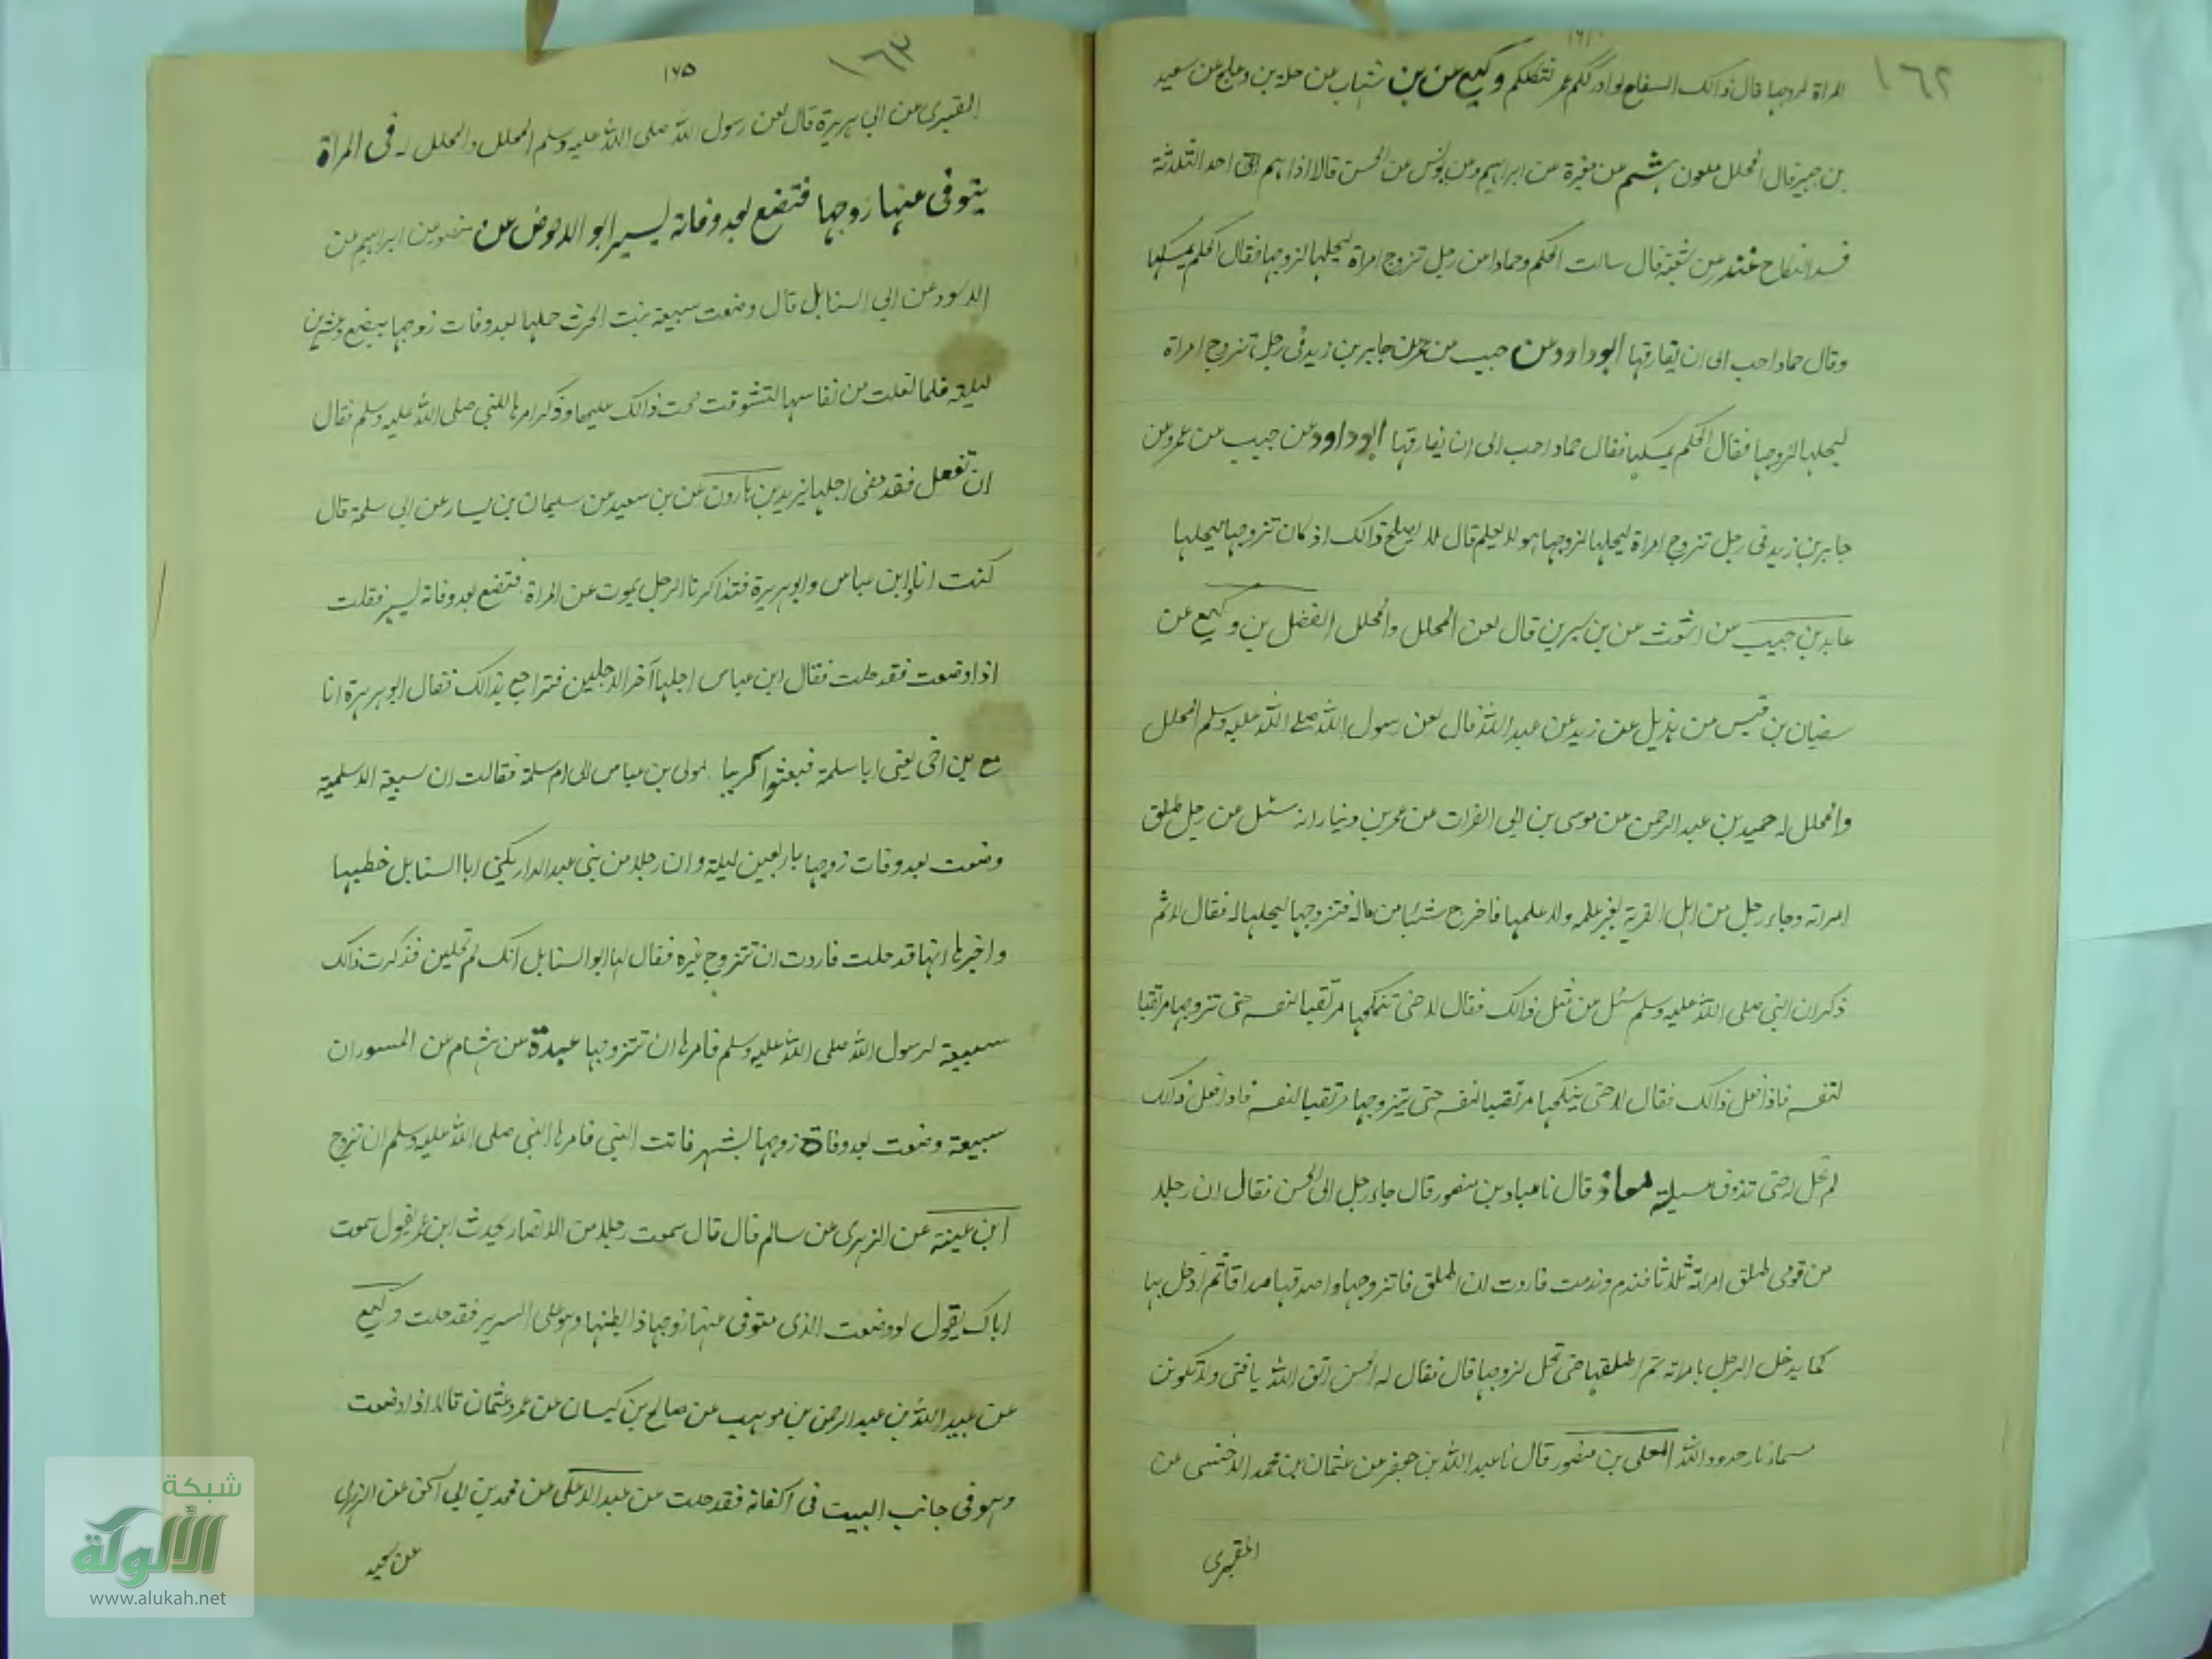 ١٦٢
المراة لزوجها قال ذالك السفاح لو ادرككم عمر لنكلكم وكيع عن بن شهاب عن حلة بن وعلج عن سعيد
بن جبير قال المحلل ملعون هشيم عن مغيرة عن ابراهيم وعن يونس عن الحسن قالا اذا هم احد الثلاثة
فسد النكاح غندر عن شعبة قال سالت الحكم وحمادا عن رجل تزوج امراة ليحلها لزوجها فقال الحكم يمسكها
وقال حماد احب الى ان يفارقها ابو داود عن حبيب عن عمرو عن جابر بن زيد فى رجل تزوج امراة
ليحلها لزوجها فقال الحكم يمسكها فقال حماد احب الى ان يفارقها ابو داود عن حبيب عن عمرو عن
جابر بن زيد فى رجل تزوج امراة ليحلها لزوجها وهو لا يعلم قال لا يصلح ذالك اذ كان تزوجها ليحلها
عابد بن حبيب عن اشعث عن بن سيرين قال لعن المحلل والمحلل الفضل بن وكيع عن
سفيان بن قيس عن هذيل عن زيد عن عبد الله قال لعن رسول الله صلى الله عليه وسلم المحلل
والمحلل له حميد بن عبد الرحمن عن موسى بن ابى الفرات عن عمر بن دينار انه سئل عن رجل طلق
امراته وجاء رجل من اهل القرية بغير علمه ولا علمها فاخرج شيئا من ماله فتزوجها ليحلها له فقال لا ثم
ذكر ان النبى صلى الله عليه وسلم سئل عن مثل ذالك فقال لا حتى تنكحها مرتقبا لنفسه حتى تزوجها مرتقبا
لنفسه فاذا فعل ذالك فقال لا حتى ينكحها مرتقبا لنفسه حتى يتزوجها مرتقبا لنفسه فاذا فعل ذالك
لم تحل له حتى تذوق عسيلته معاذ قال نا عباد بن منصور قال جاء رجل الى الحسن فقال ان رجلا
من قومى طلق امراته ثلاثا فندم وندمت فاردت ان انطلق فاتزوجها واصدقها صداقا ثم ادخل بها
كما يدخل الرجل بامراته ثم اطلقها حتى تحل لزوجها قال فقال له الحسن اتق الله يا فتى ولا تكونن
مسمار نار حدود الله المعلى بن منصور قال نا عبد الله بن جعفر عن عثمان بن محمد الاخنسى عن
المقبرى
١٦٣
١٧٥
المقبرى عن ابى هريرة قال لعن رسول الله صلى الله عليه وسلم المحلل والمحلل له فى المراة
يتوفى عنها زوجها فتضع بعد وفاته ليسير ابو الاحوص عن منصور عن ابراهيم عن
الاسود عن ابى السنابل قال وضعت سبيعة بنت الحرث حملها بعد وفات زوجها ببضع وعشرين
ليلة فلما تعلت من نفاسها لتشوقت فعت ذالك عليها وذكر امرها للنبى صلى الله عليه وسلم فقال
ان تفعل فقد مضى اجلها يزيد بن هارون عن بن سعيد عن سليمان بن يسار عن ابى سلمة قال
كنت انا وابن عباس وابو هريرة فتذاكرنا الرجل يموت عن المراة فتضع بعد وفاته ليسير فقلت
اذا وضعت فقد حلت فقال ابن عباس اجلها آخر الاجلين فتراجع بذالك فقال ابو هريرة انا
مع بن اخى يعنى ابا سلمة فبعثوا كريبا مولى بن عباس الى ام سلمة فقالت ان سبيعة الاسلمية
وضعت بعد وفات زوجها باربعين ليلة وان رجلا من بنى عبد الدار يكنى ابا السنابل خطبها
واخبرها انها قد حلت فاردت ان تتزوج غيره فقال لها ابو السنابل انك لم تحلين فذكرت ذالك
سبيعة لرسول الله صلى الله عليه وسلم فامرها ان تتزوجها عبدة عن هشام عن المسور ان
سبيعة وضعت بعد وفاة زوجها بشهر فاتت النبى فامرها النبى صلى الله عليه وسلم ان تزوج
ابن عيينة عن الزهرى عن سالم قال قال سمعت رجلا من الانصار يحدث ابن عمر يقول سمعت
اباك يقول لو وضعت الذى متوفى عنها زوجها ذا بطنها وهو على السرير فقد حلت وكيع
عن عبيد الله بن عبد الرحمن بن موهب عن صالح بن كيسان عن عمر وعثمان قالا اذا وضعت
وهو فى جانب البيت فى اكفانه فقد حلت عن عبد الاعلى عن محمد بن ابى اسحق عن الزهرى
عن سعيد
شبكة
الألوكة
www.alukah.net